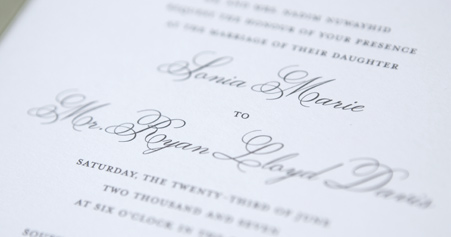 AND MRS. NADIM NUWAYHID
REQUEST THE HONOUR OF YOUR PRESENCE
AT THE MARRIAGE OF THEIR DAUGHTER
Sonia Marie
TO
Mr. Ryan Lloyd Davis
SATURDAY, THE TWENTY-THIRD OF JUNE
TWO THOUSAND AND SEVEN
AT SIX O'CLOCK IN THE